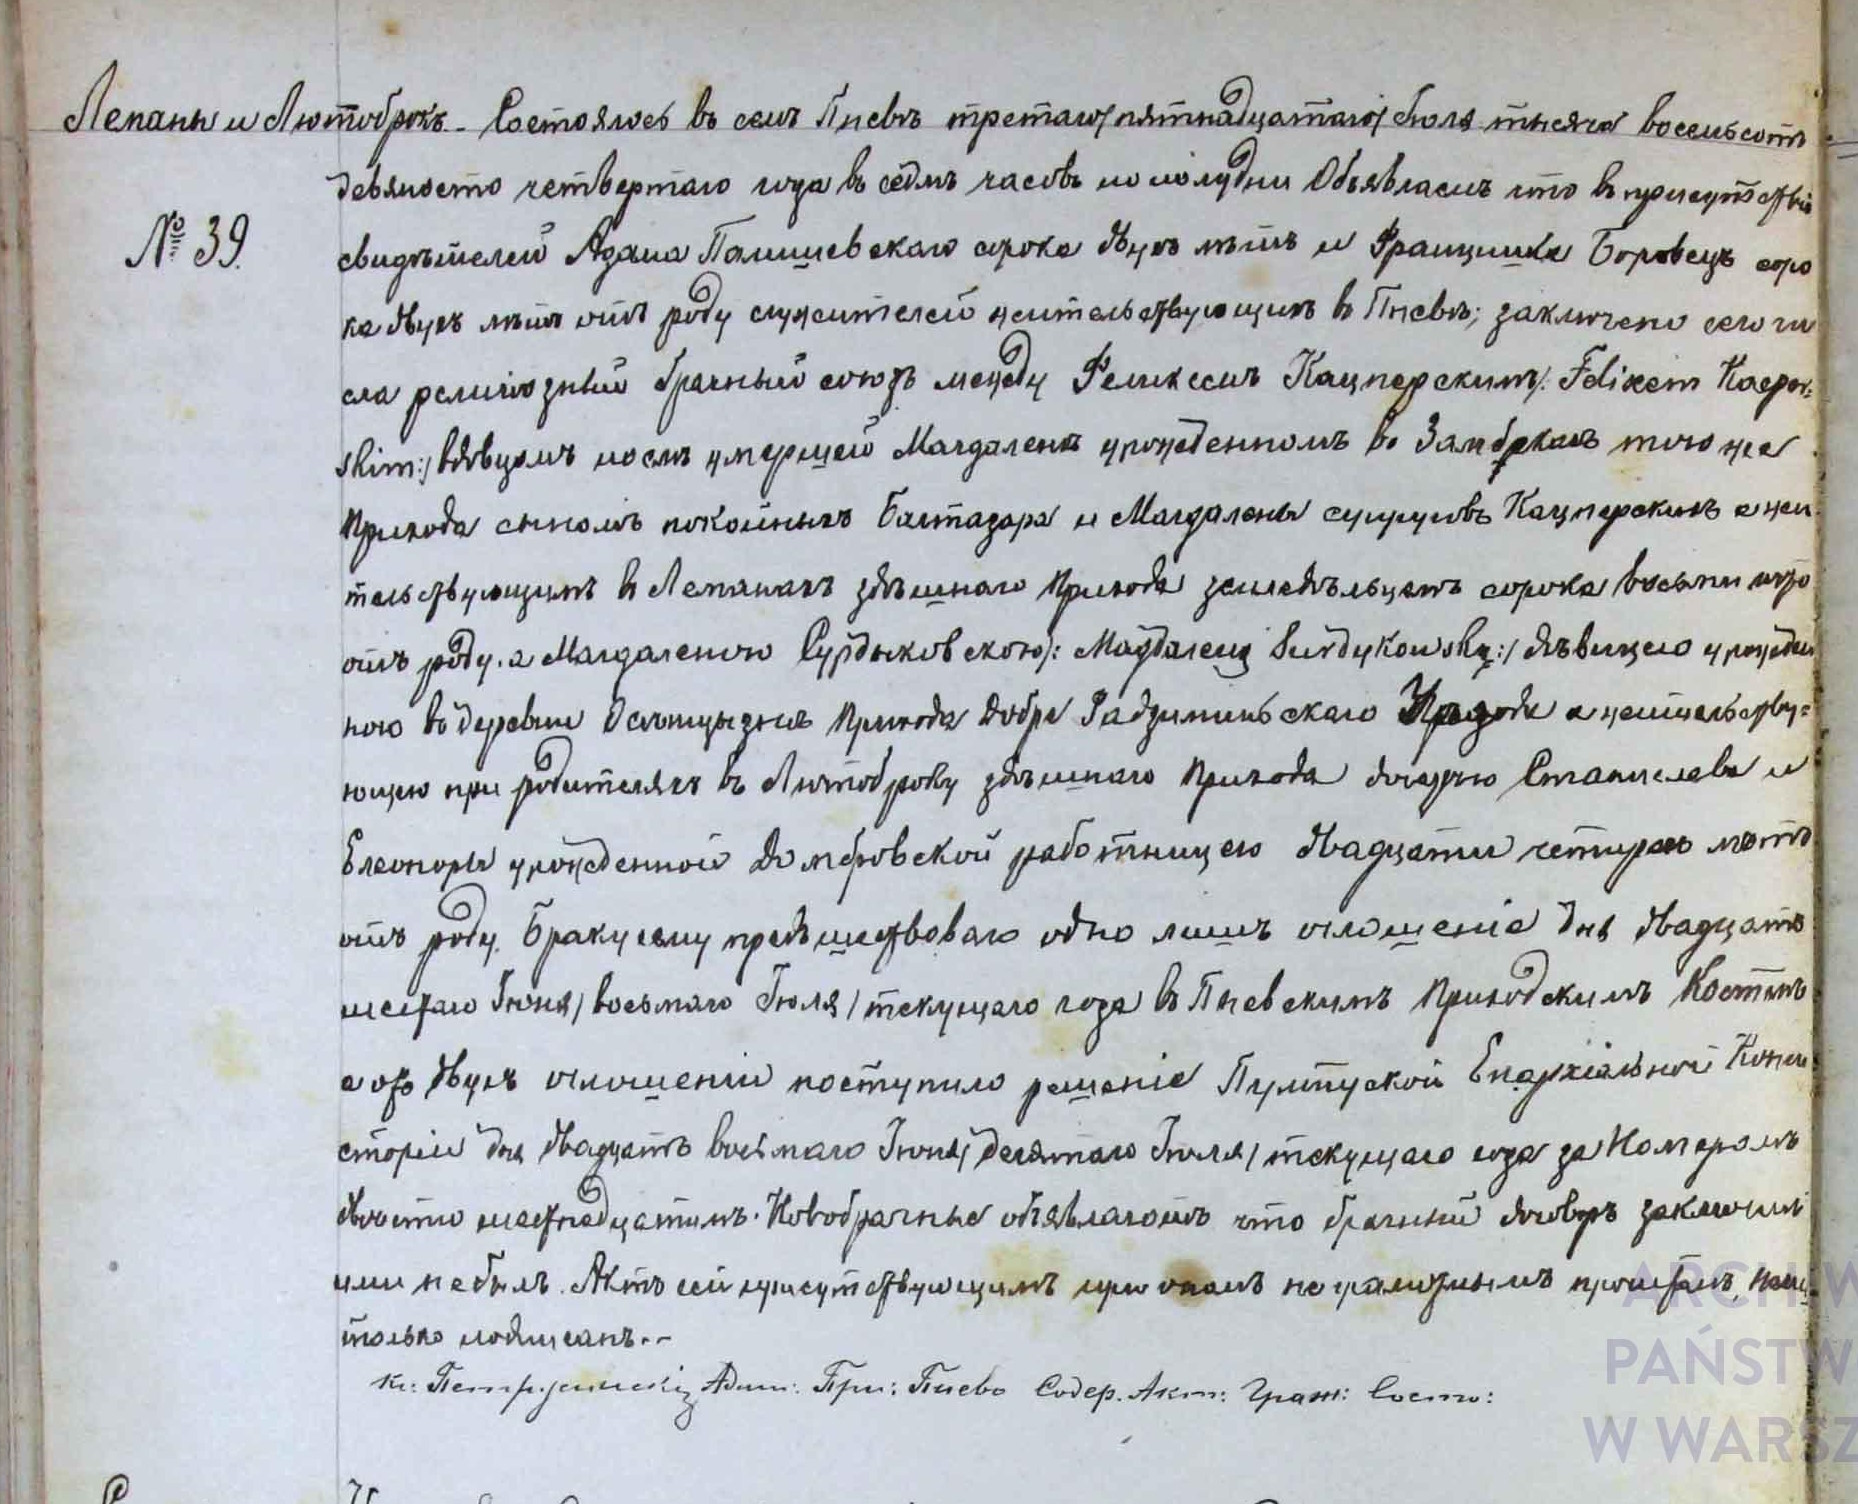 Лепаны и Лютоброкъ - Состоялось въ селѣ Пневѣ третаго /пятнадцатаго/ Іюля тысяча восемьсотъ
девяносто четвертаго года въ седмъ часовъ по полудни Объявляемъ что въ присутствіи
№ 39. свидѣтелей Адама Паляшевскаго сорока двухъ лѣтъ и Францишка Боровецъ соро
ка двухъ лѣтъ отъ роду служителей жительствующихъ въ Пневѣ; заключено сего чи
сла религіозный брачный союзъ между Феликсомъ Кацперскимъ /: Felixem Kacper-
skim:/ вдовцомъ послѣ умершей Магдалены урожденномъ въ Замбржахъ того же
Прихода сыномъ покойныхъ Балтазара и Магдалены супруговъ Кацперскихъ а жи
тельствующимъ въ Лепанахъ здѣшнаго Прихода земледѣльцемъ сорока восьми лѣтъ
отъ роду. а Магдаленою Сурдыковскою /: Magdaleną Surdykowską :/ дѣвицею урожден
ною въ деревни Прихода Добре Радзиминьскаго Уезда а жительству-
ющею при родителяхъ въ Лютоброку здѣшнаго Прихода дочерью Станислава и
Елеоноры урожденной Домбровской работницею двадцати четырехъ лѣтъ
отъ роду. Браку сему предшествовало одно лишъ оглошеніе дня двадцать
шестаго Іюня /восьмаго Іюля/ текущаго года въ Пневскимъ Приходскимъ Костелѣ
а отъ двухъ оглошеніи поступило решеніе Пултуской Епархіальной Конси
сторіи дня двадцать восьмаго Іюня /десятаго Іюля/ текущаго года за Номеромъ
двѣсти шестнадцатымъ. Новобрачные объявляютъ что брачный договоръ заключили
ими не былъ. Актъ сей присутствующимъ при ономъ неграмотнымъ прочтанъ, нами
только подписанъ.--
Кс: Петржински Адми: При: Пнево Содер. Акт: Граж: Состо:
ARCHIW
PAŃSTW
W WARSZ